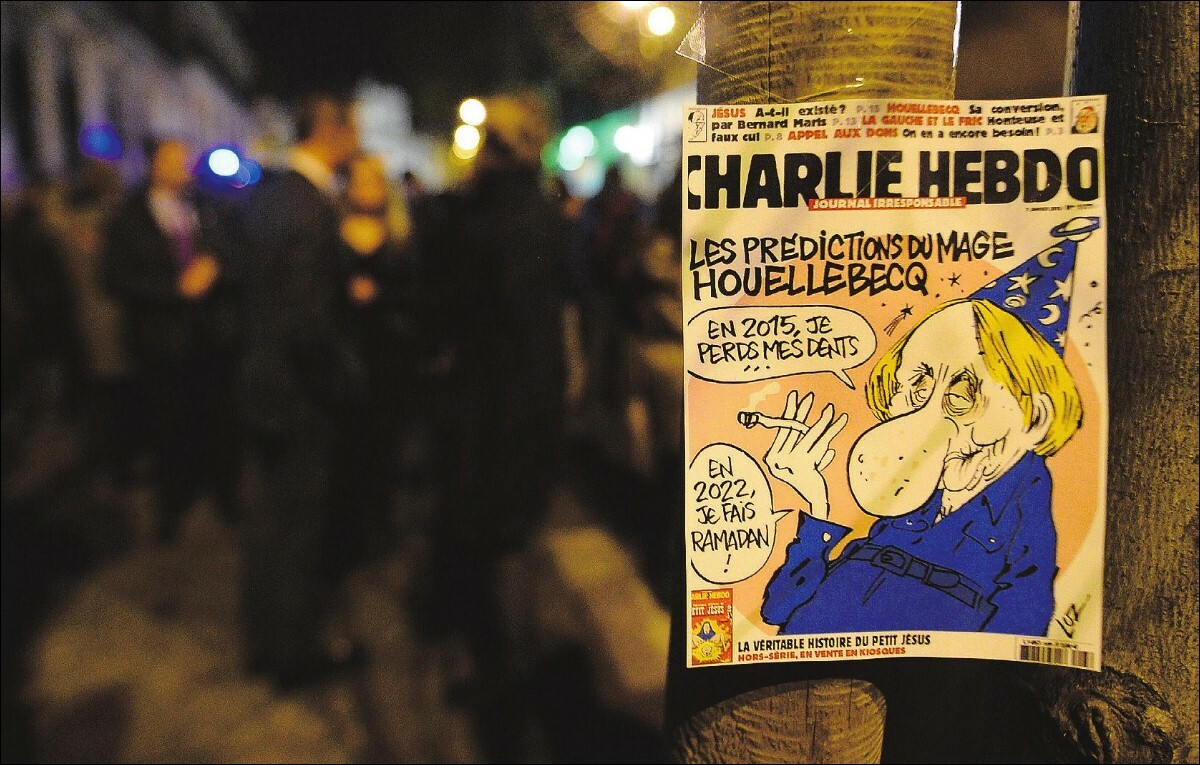 JÉSUS A-t-il existé? P.15 HOUELLEBECQ Sa conversion,
par Bernard Maris P.13 LA GAUCHE ET LE FRIC Honteuse et
faux cul P.8 APPEL AUX DONS On en a encore besoin! P.3
CHARLIE HEBDO
JOURNAL IRRESPONSABLE
LES PRÉDICTIONS DU MAGE
HOUELLEBECQ
EN 2015, JE
PERDS MES DENTS
...
EN
2022,
JE FAIS
RAMADAN
!
LUZ
CHARLIE HEBDO
PETIT JÉSUS
LA VÉRITABLE HISTOIRE DU PETIT JÉSUS
HORS-SÉRIE, EN VENTE EN KIOSQUES